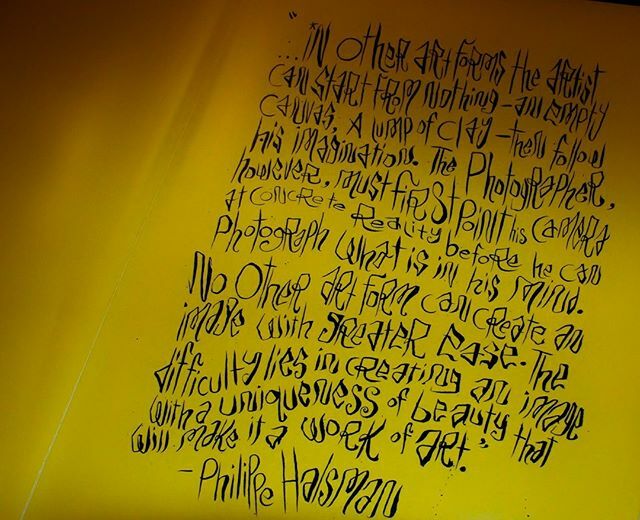 "...IN OTHER ART FORMS the ARTIST
CAN START FROM NOTHING - AN EMPTY
CANVAS, A LUMP OF CLAY - then follow
his imagination. The PhotogRApheR,
however, must fiRSt Point his CAMERA
at CONCRete ReaLity before he can
PhotogRaph what is in his mind.
No OtheR ARt FORM can cReate an
image with gReateR Ease. The
difficulty lies in creating an image
with a uniqueness of beauty that
will make it a woRK of aRt."
- Philippe Halsman